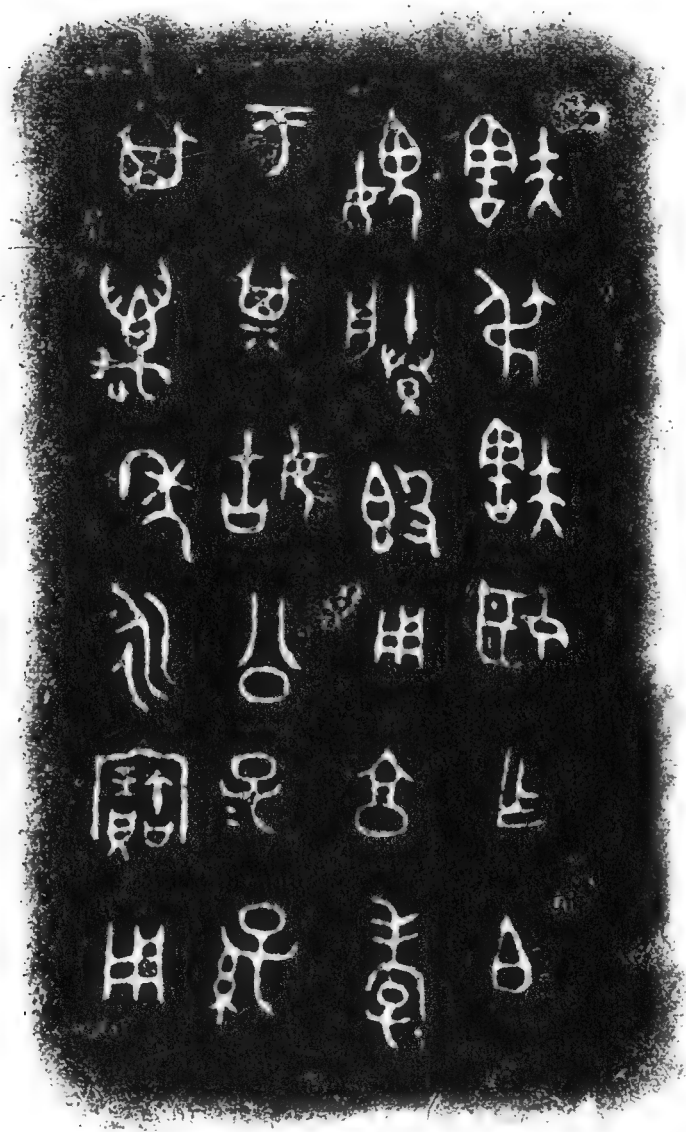 㝬叔㝬姬乍白
媿賸簋用享孝
于其姑公子孫
其萬年永寶用